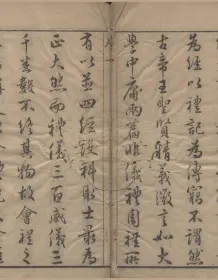 為經以禮記為傳窮不謂然
古帝王聖賢精義微言如大
學中庸兩篇雖儀禮周禮所
有以並四經設科取士最為
正大然而禮儀三百威儀三
千差數不終其物故會禮之